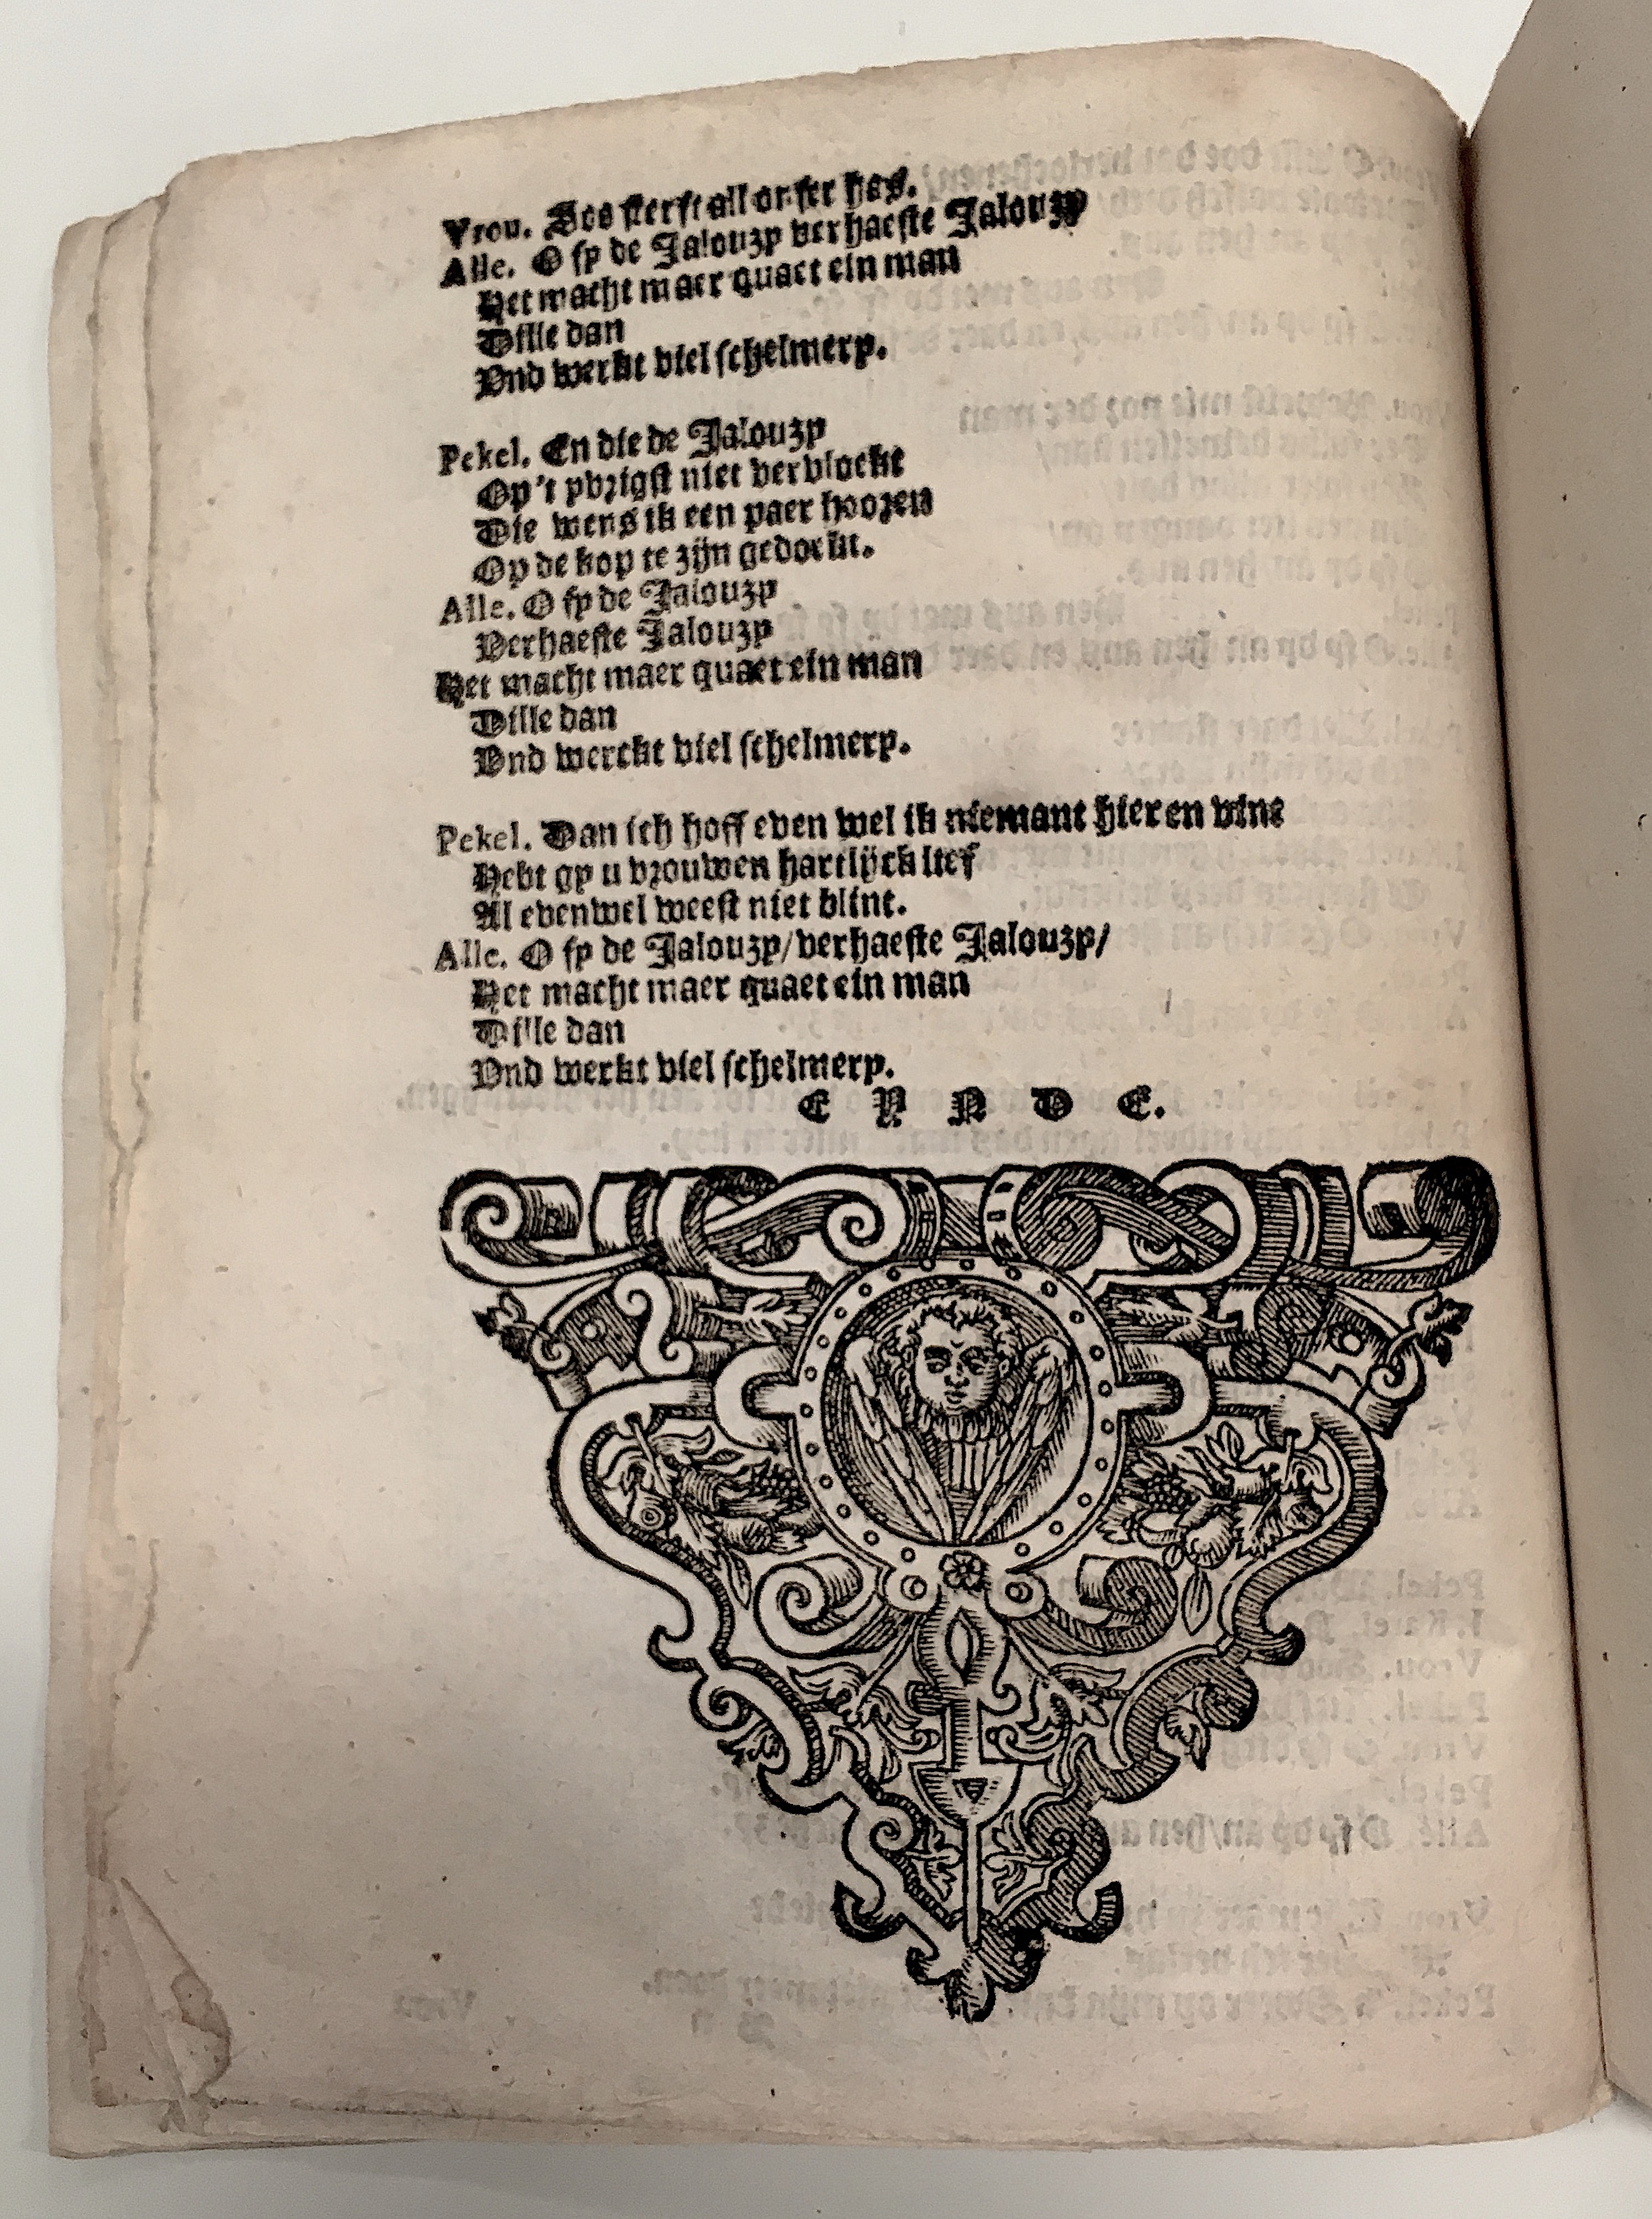 Vrou. Soo sterft all onser has.
Alle. O fy de Jalouzy verhaeste Jalouzy
Het macht maer quaet ein man
Dille dan
Vnd werkt viel schelmery.
Pekel. En die de Jalouzy
Op 't yvrigst niet vervloekt
Die wens ik een paer hoozen
Op de kop te zijn gedoekt.
Alle. O fy de Jalouzy
Verhaeste Jalouzy
Het macht maer quaet ein man
Dille dan
Vnd werckt viel schelmery.
Pekel. Dan ich hoff even wel ik niemant hier en vint
Hebt gy u vrouwen hartlijck lief
Al evenwel weest niet blint.
Alle. O fy de Jalouzy/ verhaeste Jalouzy/
Het macht maer quaet ein man
Dille dan
Vnd werkt viel schelmery.
E Y N D E.